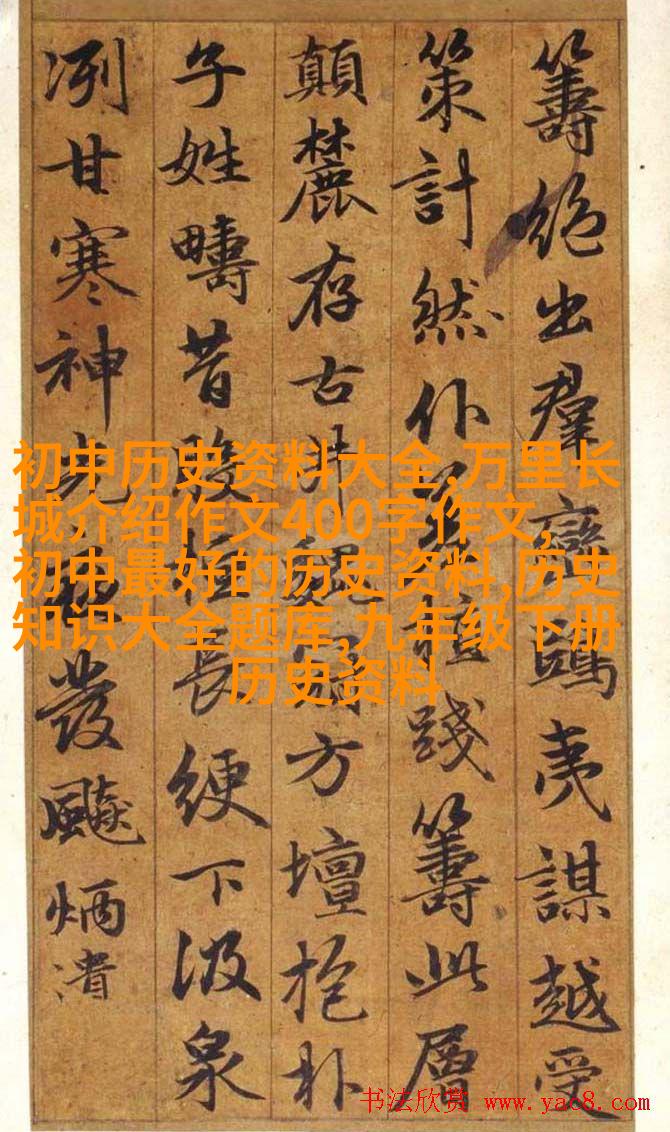 籌絕出羣鴟夷謀越受
策計然仆種踐籌此層
顛麓存古井方壇抱朴
子姓疇昔浚長綆下汲泉
冽甘寒神光發飈炳漬
初中历史资料大全,万里长
城介绍作文400字作文,
初中最好的历史资料,历史
知识大全题库,九年级下册
历史资料
书法欣赏 www.yac8.com